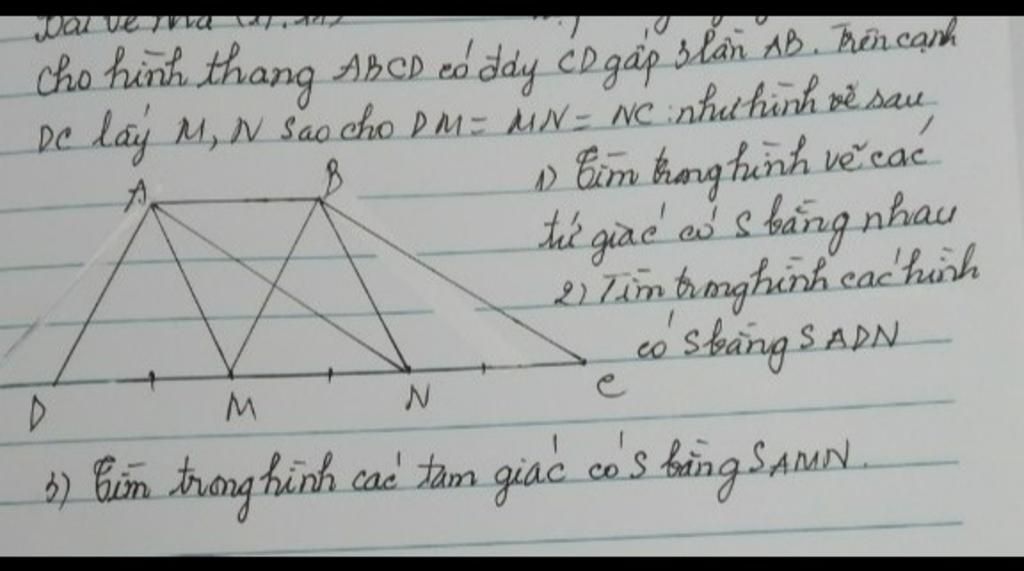 cho hình thang ABCD có đáy CD gấp 3 lần AB. Trên cạnh
DC lấy M, N sao cho DM = MN = NC như hình vẽ sau
A
B
1) Tìm trong hình vẽ các
tứ giác có S bằng nhau
2) Tìm trong hình các hình
có S bằng S ADN
D
M
N
C
3) Tìm trong hình các tam giác có S bằng S AMN.